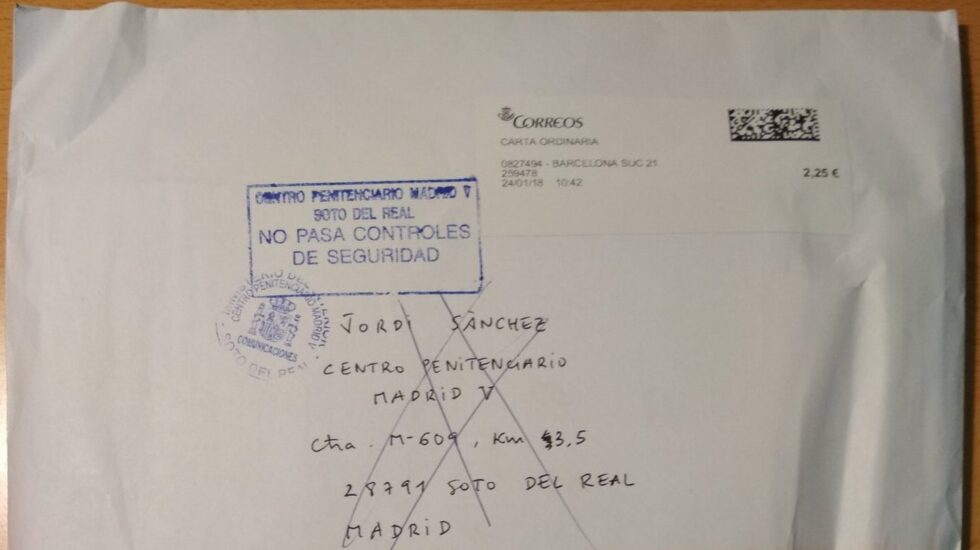 CORREOS
CARTA ORDINARIA
0827494 - BARCELONA SUC 21
259478
24/01/18 10:42
2,25 €
CENTRO PENITENCIARIO MADRID V
SOTO DEL REAL
NO PASA CONTROLES
DE SEGURIDAD
CENTRO PENITENCIARIO MADRID V
COMUNICACIONES
SOTO DEL REAL
JORDI SÀNCHEZ
CENTRO PENITENCIARIO
MADRID V
Ctra. M-609, Km 3,5
28791 SOTO DEL REAL
MADRID